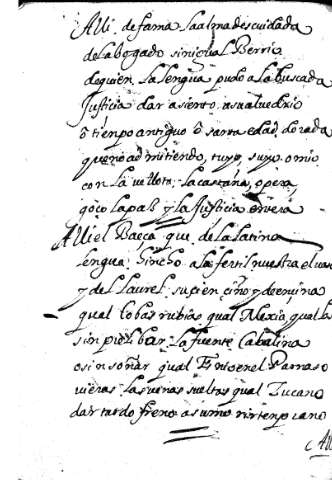 Alli de fama la alma descuidada
del abogado sin igual Berrio
de quien la lengua pudo a la buscada
Justicia dar asiento a su alvedrio
ô tiempo antiguo ô santa edad dorada
que no admitiendo, tuyo, suyo o mio
con la vellota, la castaña, o pera
goço la paz y la Justicia entera
Alli el Baeça que de la latina
lengua, hinche a la fertil nuestra el
y del laurel su sien ciño y de enzina
qual lobas rubias qual Mexia, qual
sin piel libar la fuente Cabalina
o sin soñar qual Enio en el Parnaso
vieras las venas sueltas qual Lucano
dar tardo freno a su morir tenprano
All